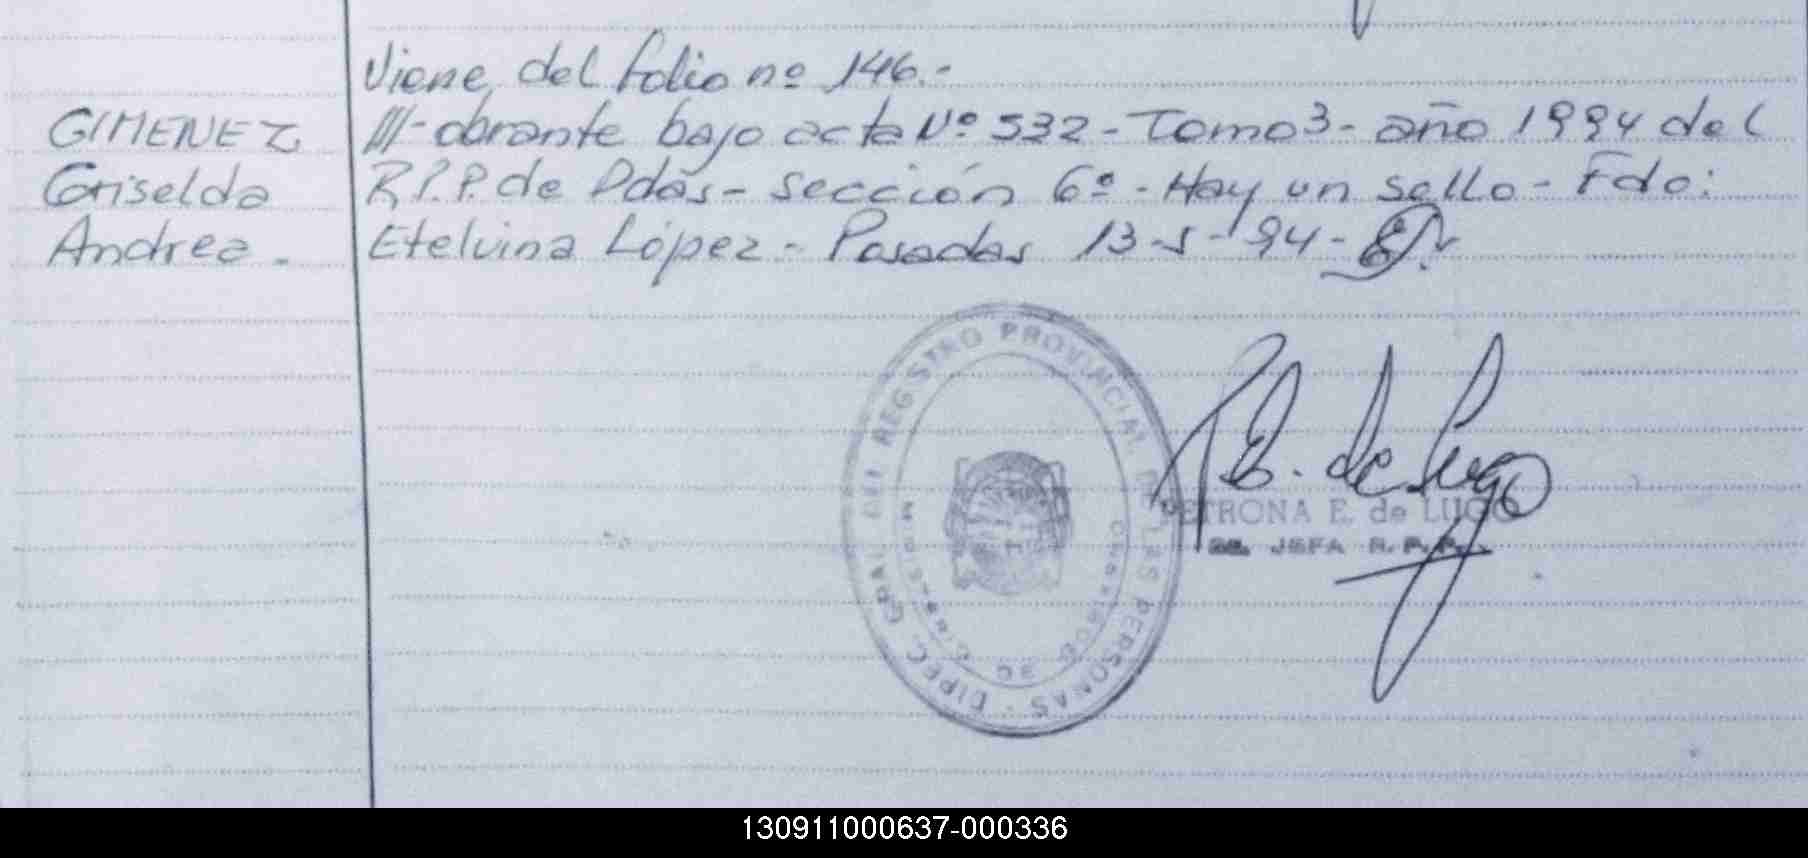 Viene del folio nº 146.-
GIMENEZ
///-obrante bajo acta Nº 532 - Tomo 3 - año 1994 del
Griselda
R.P.P. de Pdas - Sección 6º - Hay un sello - Fdo:
Andrea.
Etelvina López - Posadas 13-5-94-
DIREC. GRAL. DEL REGISTRO PROVINCIAL DE LAS PERSONAS
P. E. de Lugo
PETRONA E. de LUGO
JEFA R. P. P.
130911000637-000336